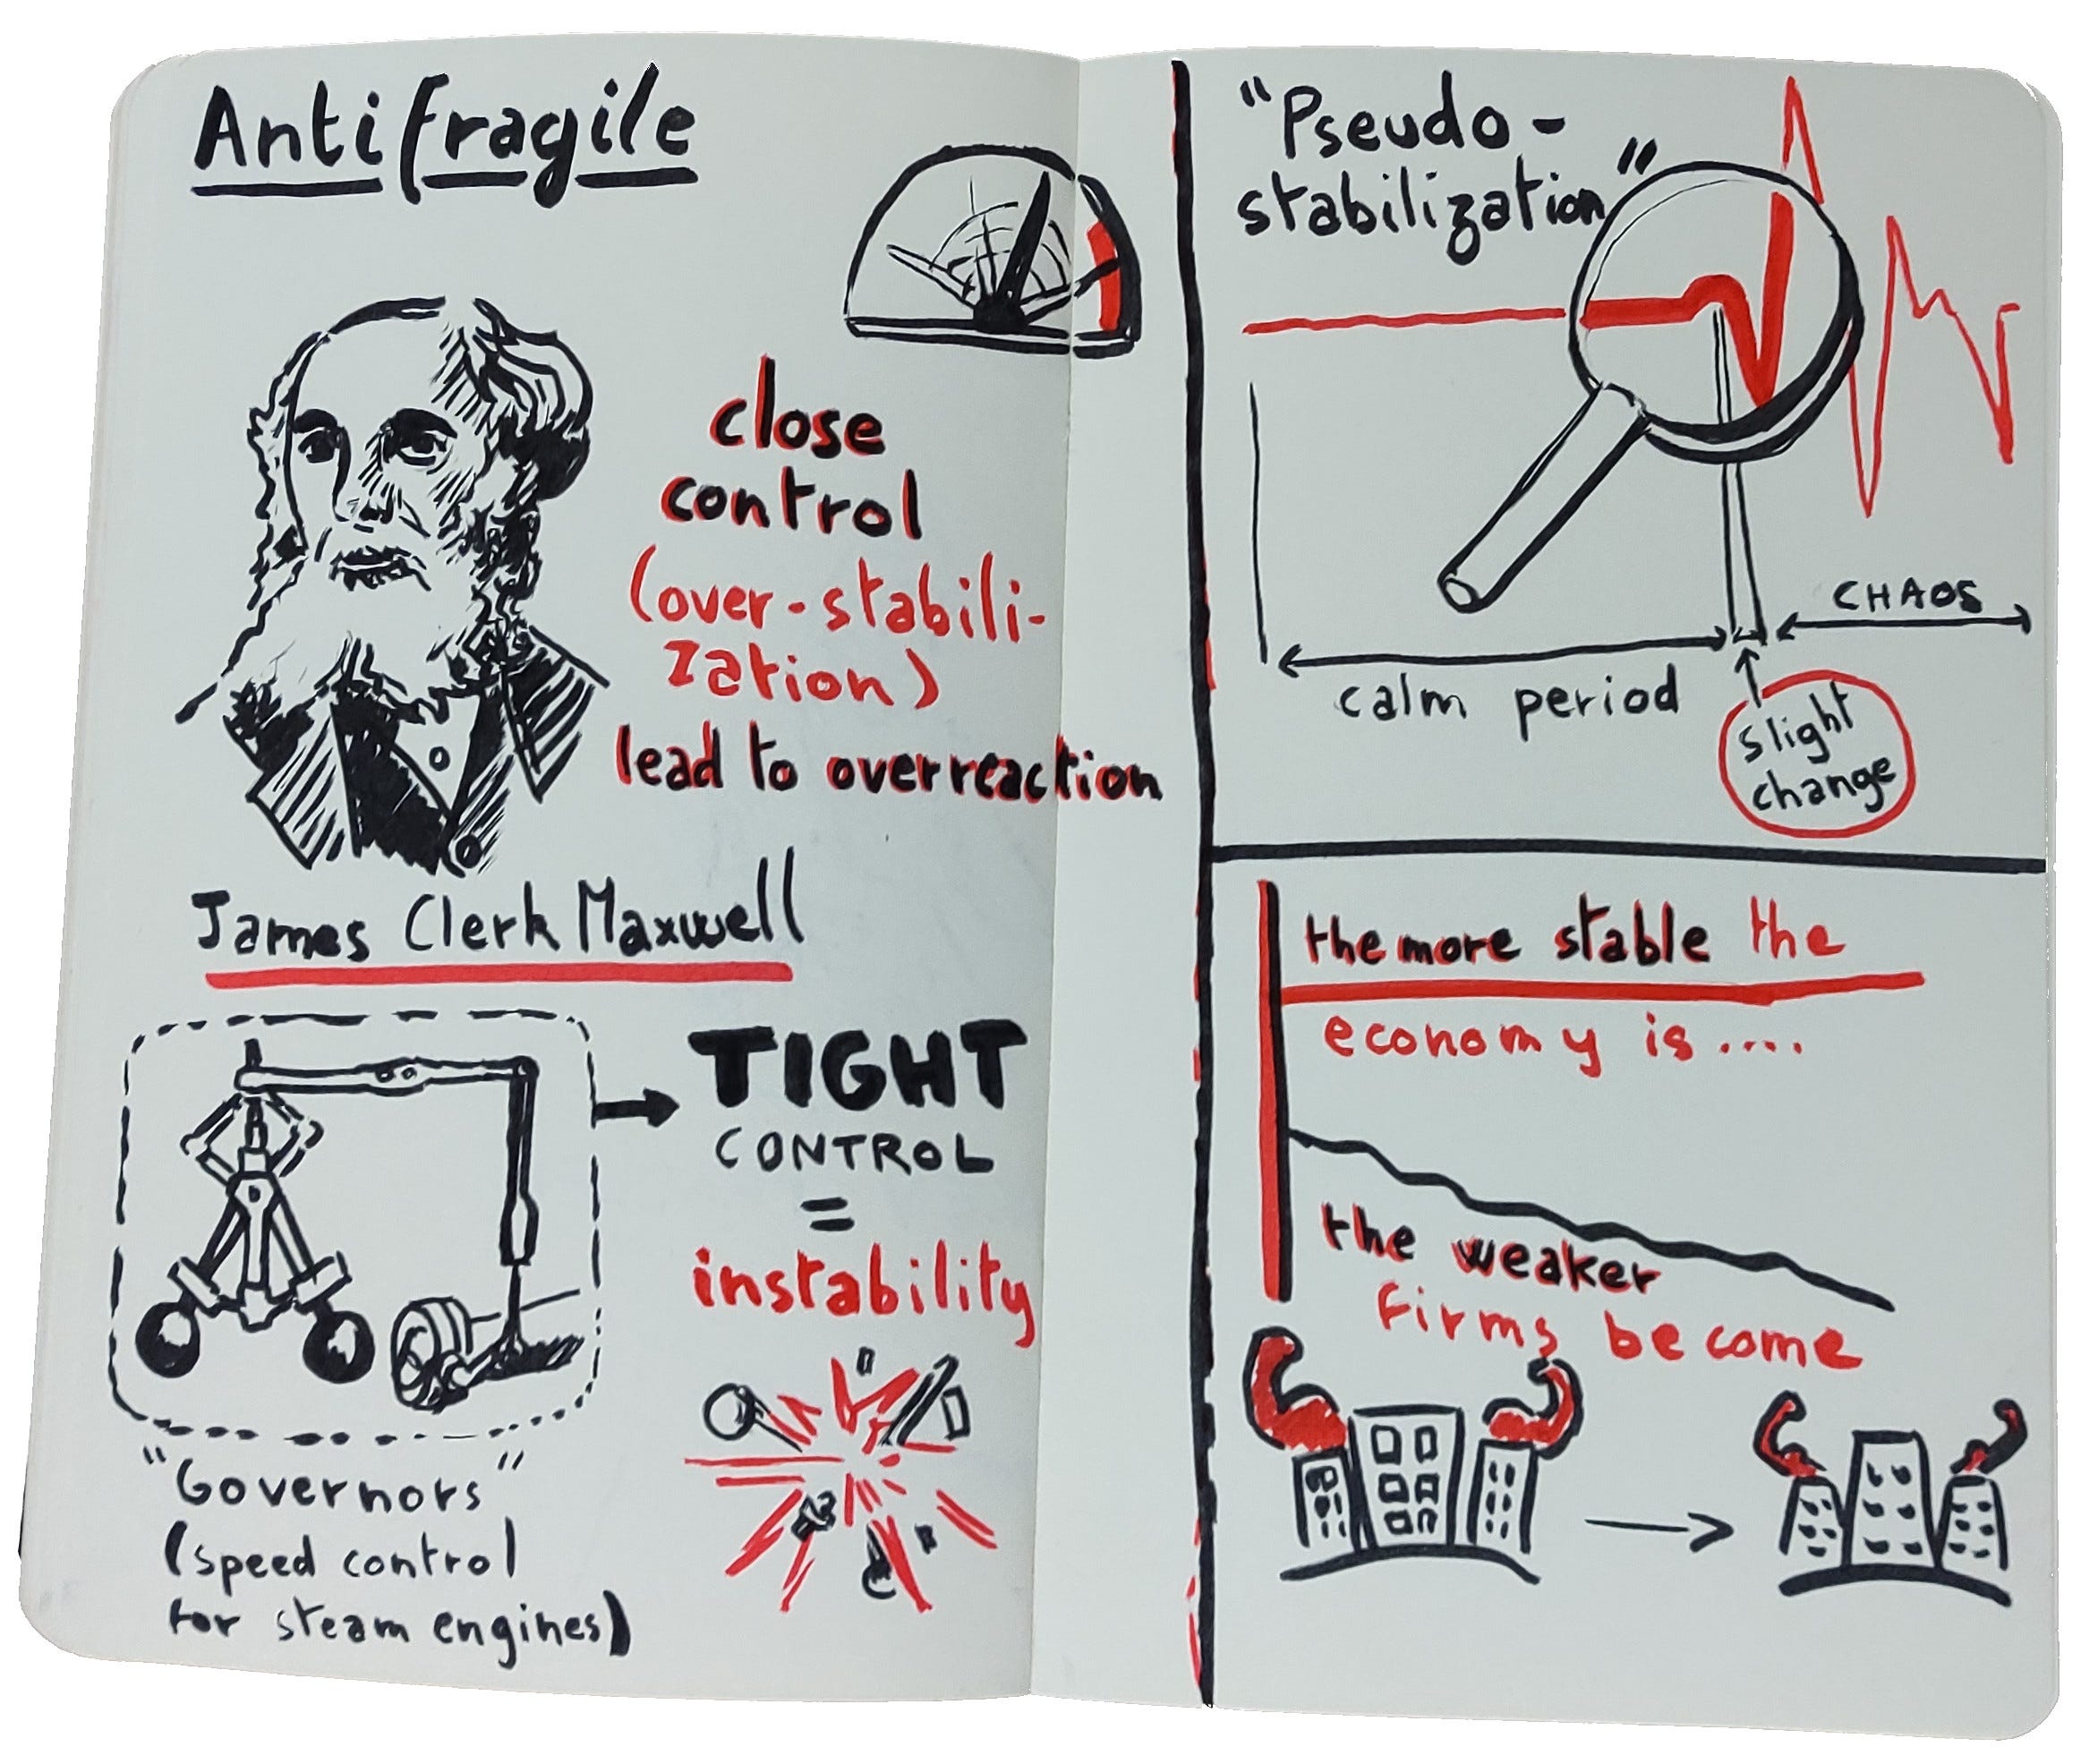 Antifragile
close
control
(over-stabili-
zation)
lead to overreaction
James Clerk Maxwell
TIGHT
CONTROL
=
instability
"Governors"
(speed control
for steam engines)
"Pseudo-
stabilization"
CHAOS
calm period
slight
change
the more stable the
economy is....
the weaker
firms become